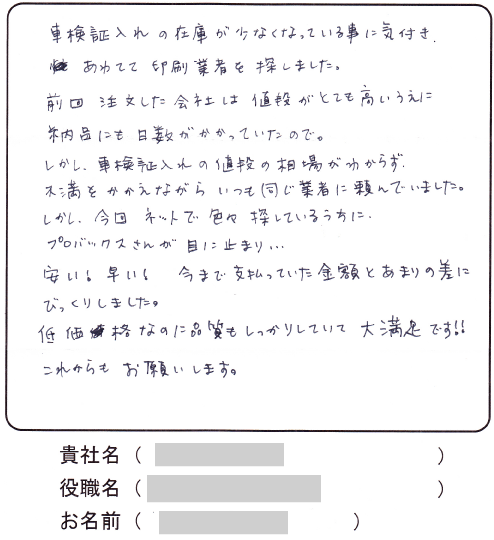 車検証入れの在庫が少なくなっている事に気付き、
あわてて印刷業者を探しました。
前回注文した会社は値段がとても高いうえに
納品にも日数がかかっていたので。
しかし、車検証入れの値段の相場がわからず、
不満をかかえながらいつも同じ業者に頼んでいました。
しかし、今回ネットで色々探しているうちに、
プロバックスさんが目に止まり...
安い!早い! 今まで支払っていた金額とあまりの差に
びっくりしました。
低価格なのに品質もしっかりしていて大満足です!!
これからもお願いします。
貴社名( )
役職名( )
お名前( )